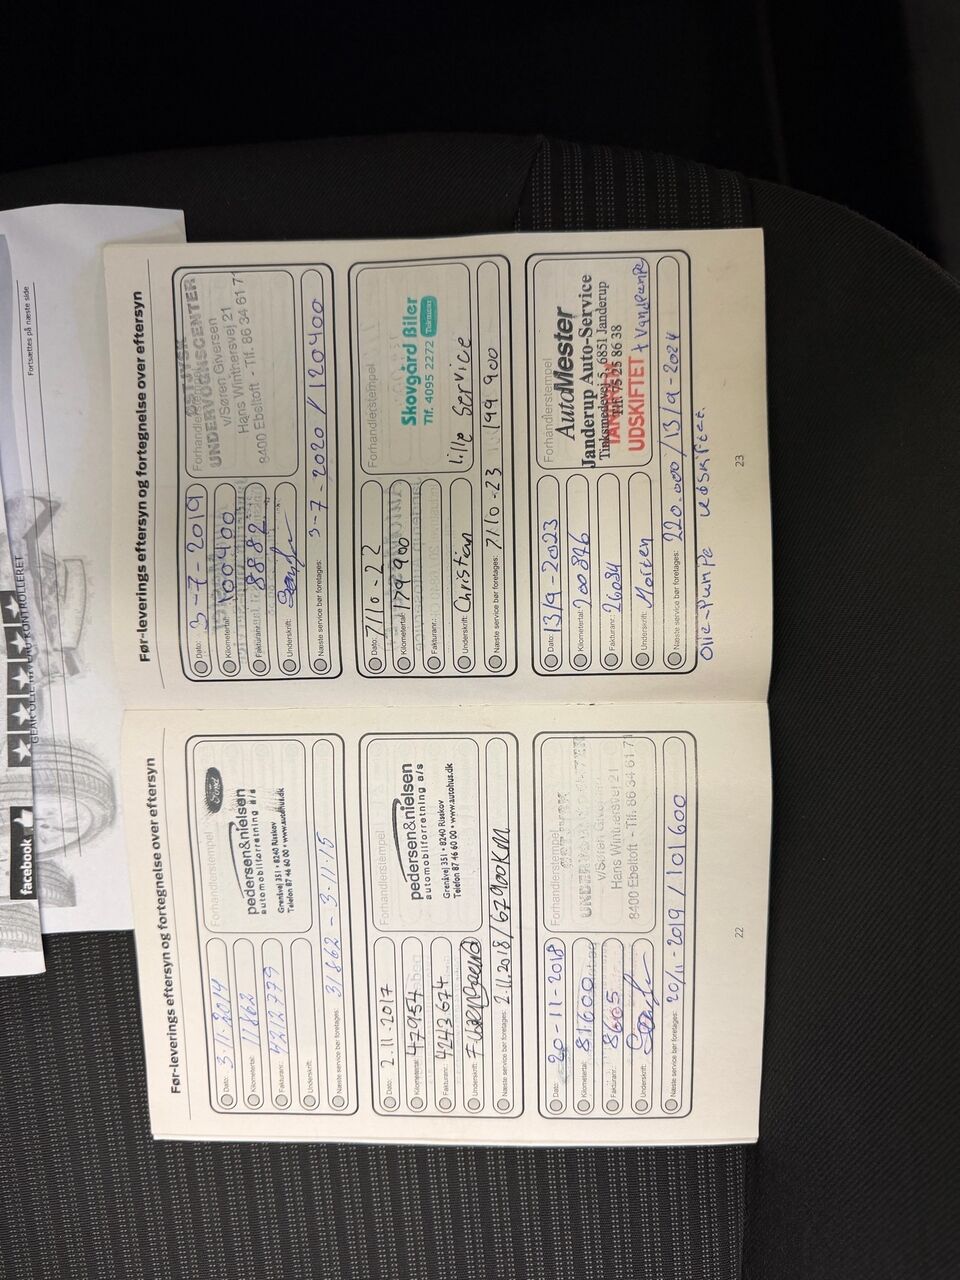 Før-leverings eftersyn og fortegnelse over eftersyn
Dato: 3/1. 2014
Kilometertal: 11862
Fakturanr.:
Underskrift:
Næste service bør foretages: 31862 - 3-11-15
Forhandlerstempel
Ford
pedersen&nielsen
automobilforretning a/s
Grenåvej 351 • 8240 Risskov
Telefon 87 46 60 00 • www.autohus.dk
Dato: 2.11.2017
Kilometertal: 47954
Fakturanr.: 4243674
Underskrift:
Næste service bør foretages: 2.11.2018/67900KM
Forhandlerstempel
pedersen&nielsen
automobilforretning a/s
Grenåvej 351 • 8240 Risskov
Telefon 87 46 60 00 • www.autohus.dk
Dato: 20-11-2018
Kilometertal: 81600
Fakturanr.: 8605
Underskrift:
Næste service bør foretages: 20/11-2019 / 101600
Forhandlerstempel
Hans Winthersvej 21
8400 Ebeltoft - Tlf. 86 34 61 71
22
Før-leverings eftersyn og fortegnelse over eftersyn
Dato: 3-7-2019
Kilometertal: 100400
Fakturanr.: 8882
Underskrift:
Næste service bør foretages: 3-7-2020 / 120400
Forhandlerstempel
UNDERVOGNSCENTER
v/Søren Giversen
Hans Winthersvej 21
8400 Ebeltoft - Tlf. 86 34 61 71
Dato: 7/10-22
Kilometertal: 179900
Fakturanr.:
Underskrift: Christian
Næste service bør foretages: 7/10-23 199900
Forhandlerstempel
Skovgård Biler
Tlf. 4095 2272
lille Service
Dato: 13/9-2023
Kilometertal: 200876
Fakturanr.: 26084
Underskrift: Morten
Næste service bør foretages: 220.000/13/9-2024
Forhandlerstempel
AutoMester
Janderup Auto-Service
Tinksmedevej 5, 6851 Janderup
Tlf. 75 25 86 38
TANDREM
UDSKIFTET + Vandpumpe
Olie-Pumpe udskiftet.
23
Fortsættes på næste side
facebook